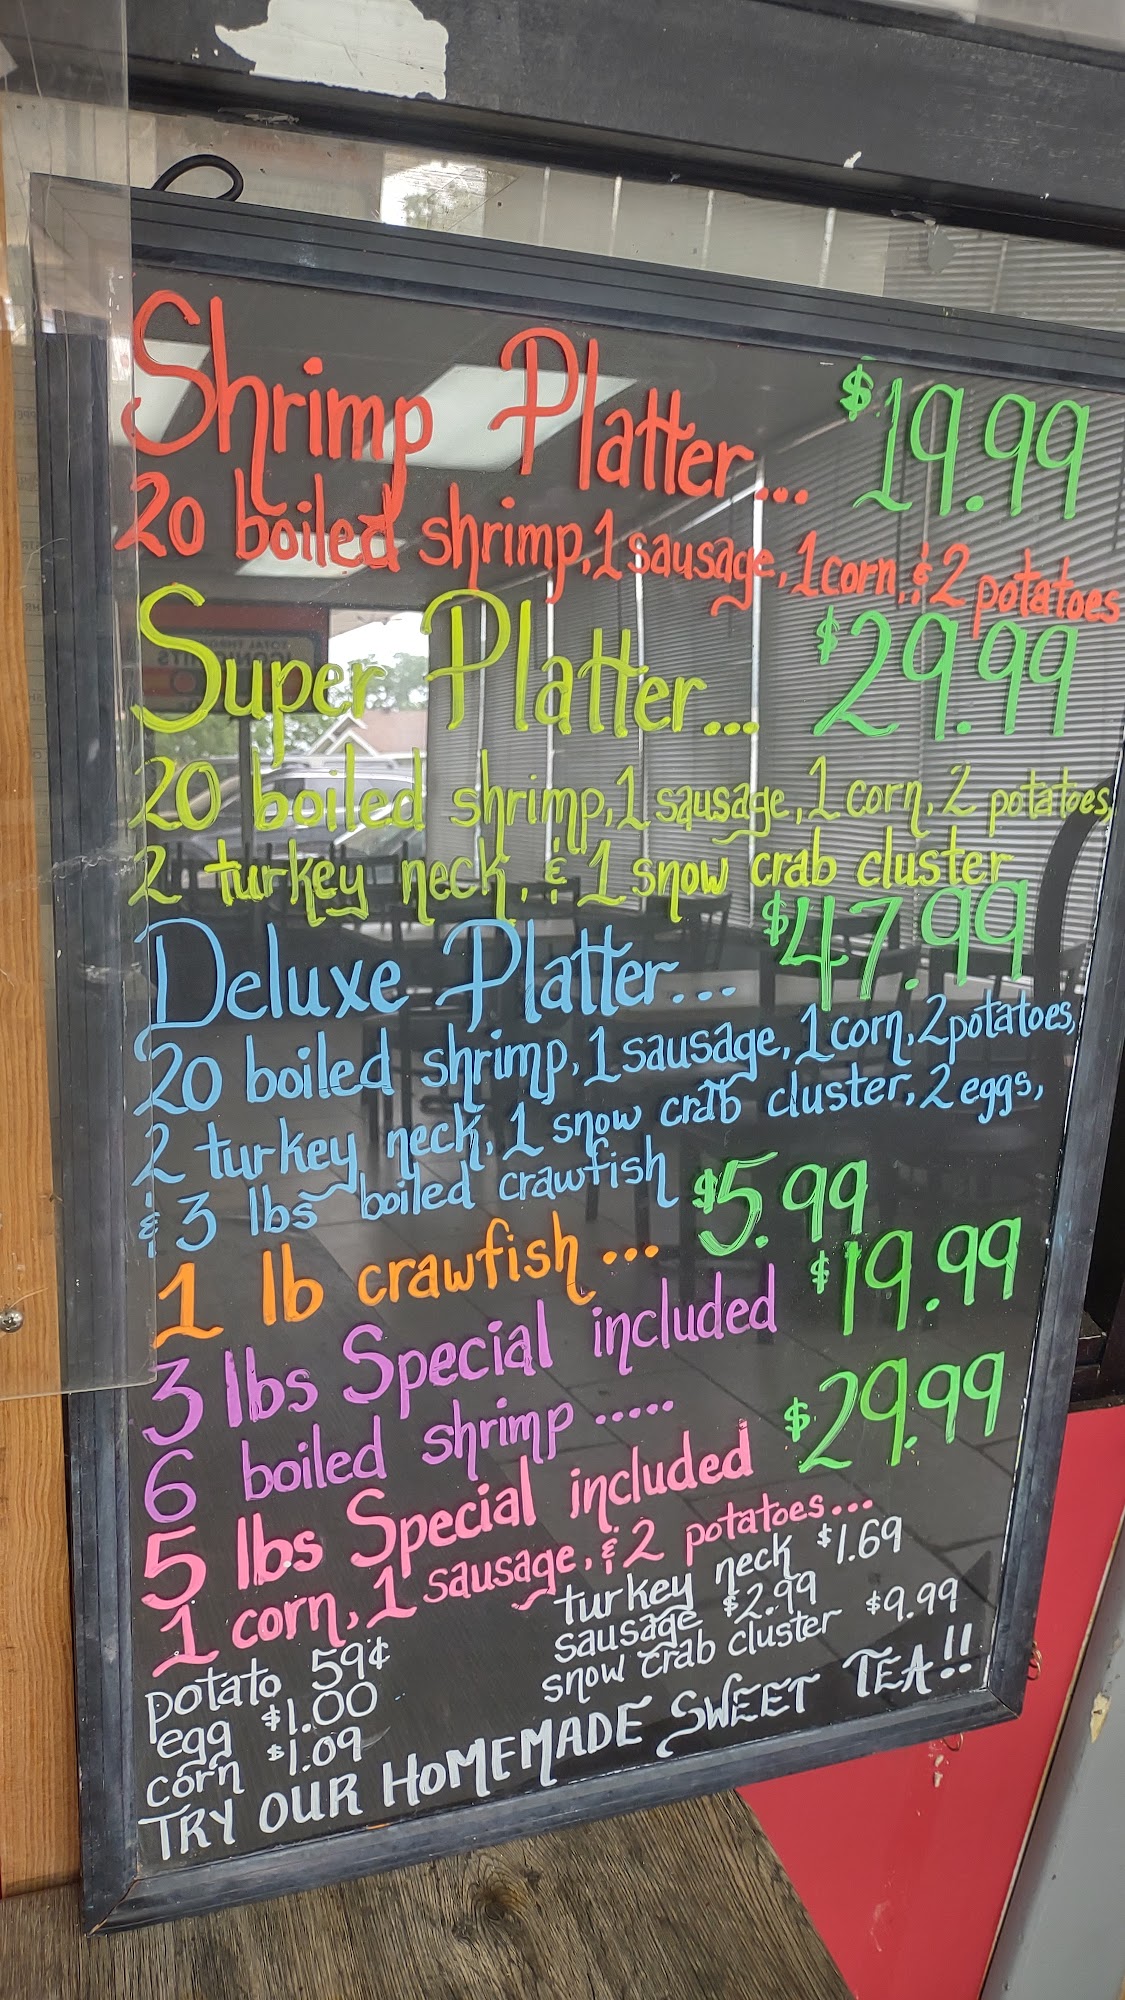 Shrimp Platter... $19.99
20 boiled shrimp, 1 sausage, 1 corn, & 2 potatoes
Super Platter... $29.99
20 boiled shrimp, 1 sausage, 1 corn, 2 potatoes,
2 turkey neck, & 1 snow crab cluster
Deluxe Platter... $47.99
20 boiled shrimp, 1 sausage, 1 corn, 2 potatoes,
2 turkey neck, 1 snow crab cluster, 2 eggs,
& 3 lbs boiled crawfish
1 lb crawfish... $5.99
3 lbs Special included $19.99
6 boiled shrimp.....
5 lbs Special included $29.99
1 corn, 1 sausage, & 2 potatoes...
potato 59¢
egg $1.00
corn $1.09
turkey neck $1.69
sausage $2.99
snow crab cluster $9.99
TRY OUR HOMEMADE SWEET TEA!!